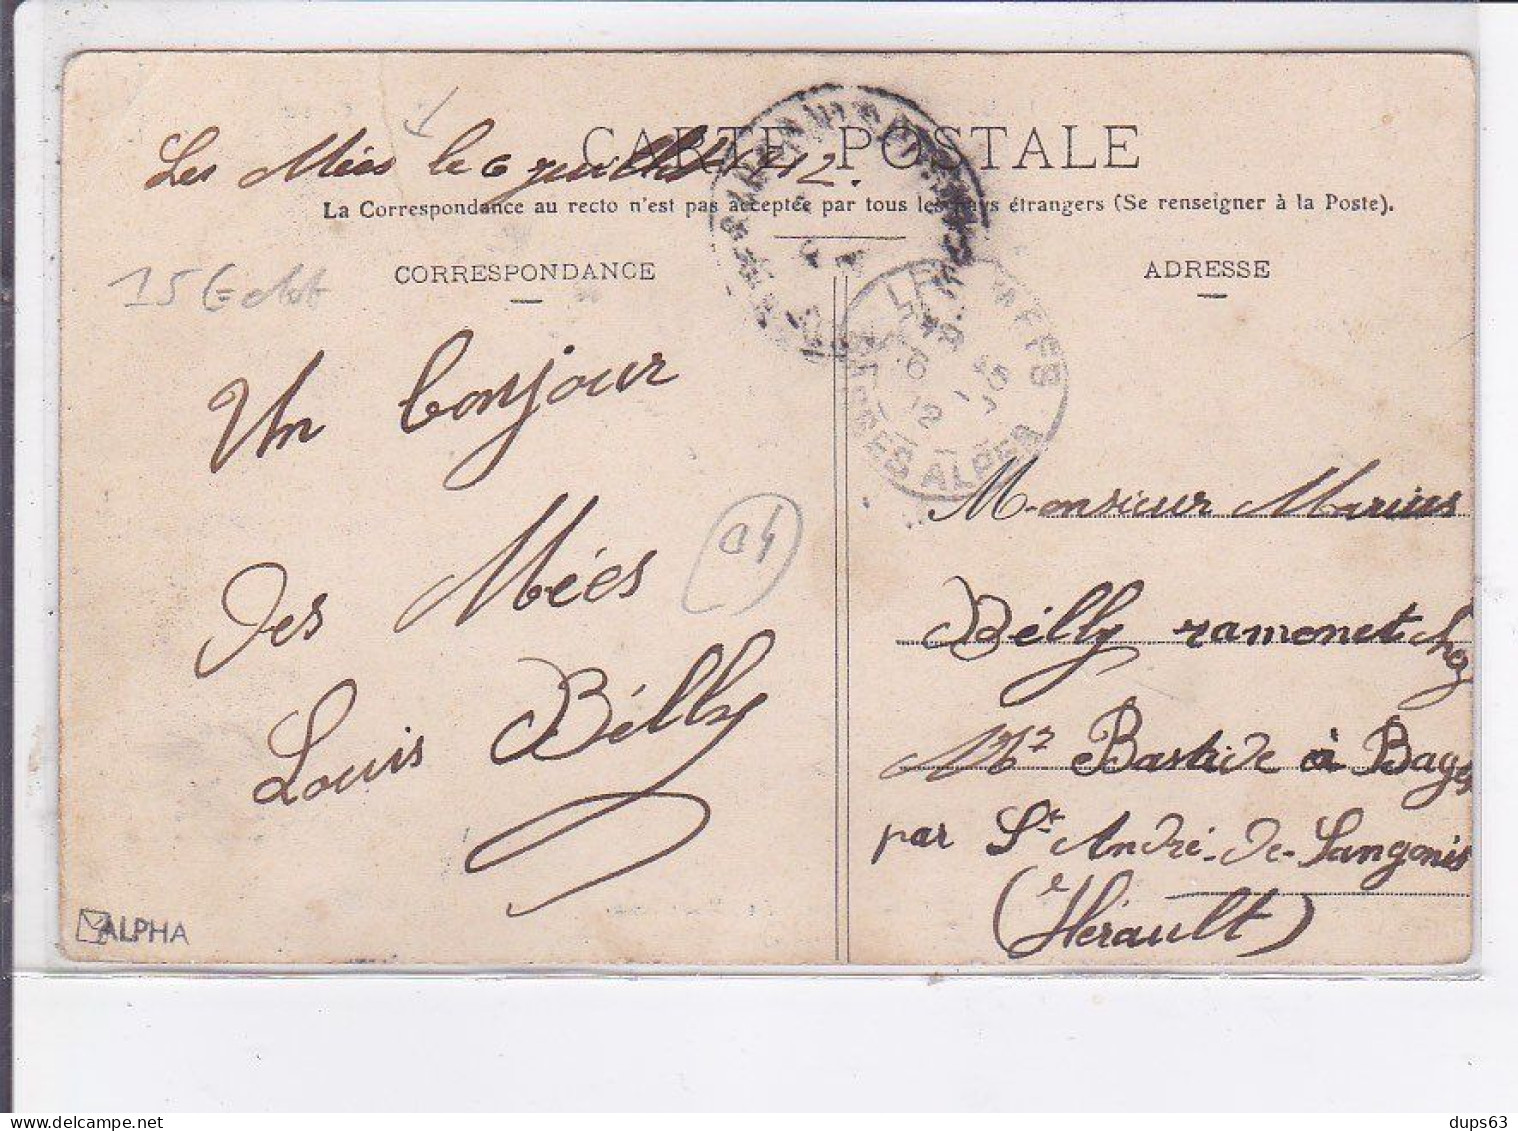 CARTE POSTALE
Les Mées le 6 juillet 1912.
La Correspondance au recto n'est pas acceptée par tous les pays étrangers (Se renseigner à la Poste).
CORRESPONDANCE
ADRESSE
Un bonjour
des Mées
Louis Bélly
04
LES MEES
6 12
BASSES ALPES
Monsieur Marius
Bélly ramonet chez
Mr Bastide à Bages
par St André-de-Sangonis
(Hérault)
ALPHA
dups63